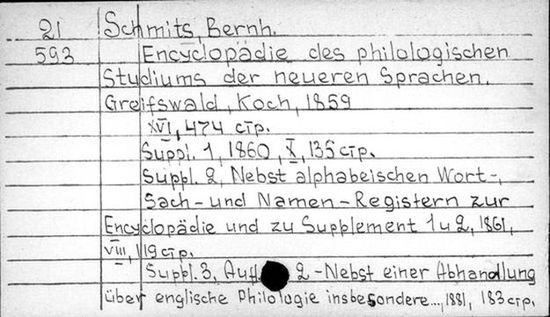 21 Schmits, Bernh.
593 Encyclopädie des philologischen
Studiums der neueren Sprachen.
Greifswald, Koch, 1859
XVI, 474 стр.
Suppl. 1, 1860, X, 135 стр.
Suppl. 2, Nebst alphabeischen Wort-,
Sach- und Namen-Registern zur
Encyclopädie und zu Supplement 1 u 2, 1861,
VIII, 119 стр.
Suppl. 3, 2 - Nebst einer Abhandlung
über englische Philologie insbesondere..., 1881, 183 стр.